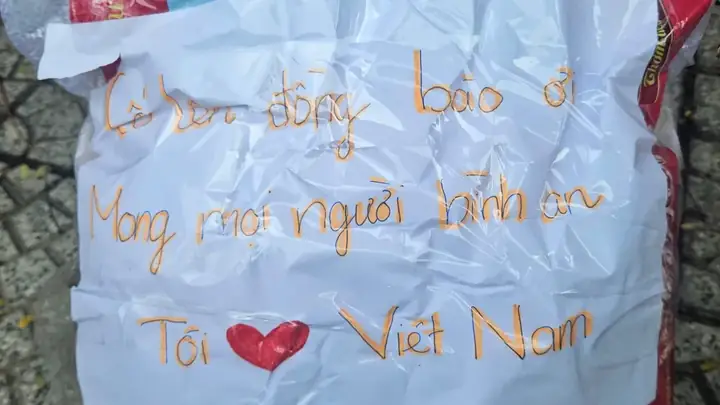 Cố lên đồng bào ơi
Mong mọi người bình an
Tôi ❤ Việt Nam